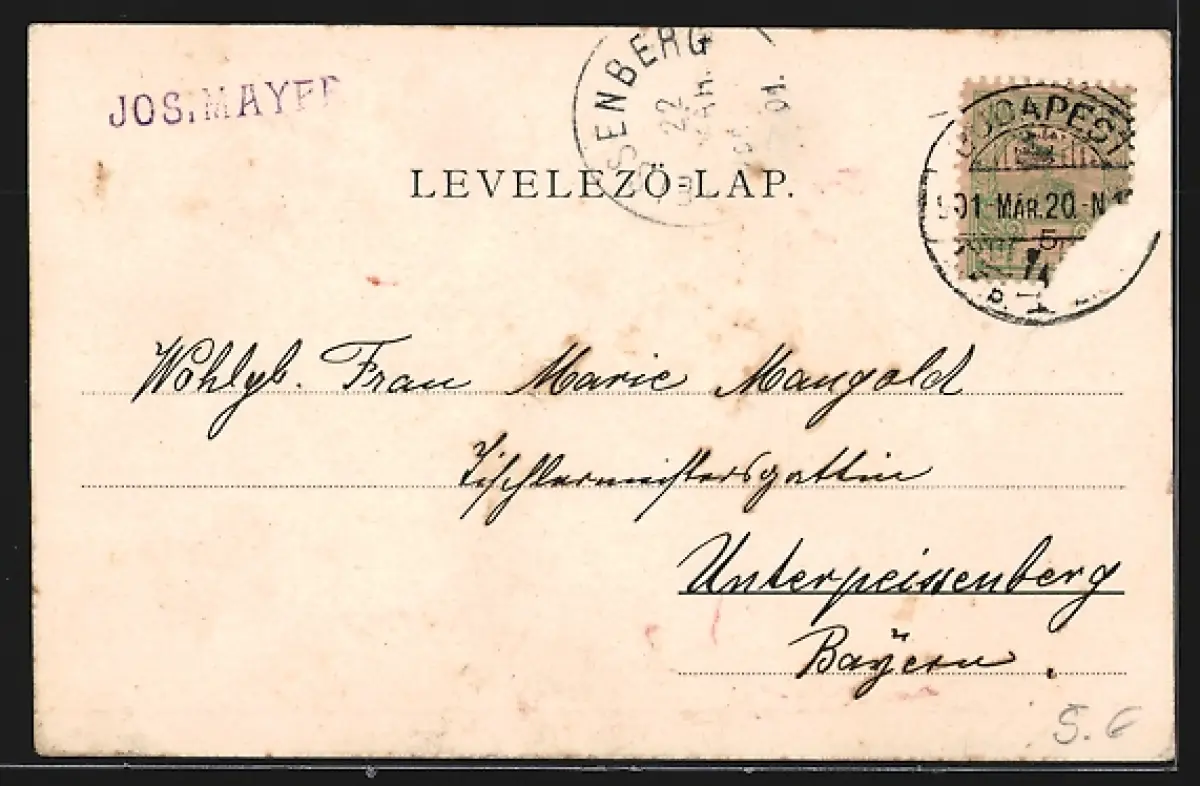 JOS. MAYER
SENBERG
22
MÄR.
01.
BUDAPEST
901 MÁR. 20.-N 1
5
LEVELEZŐ-LAP.
Wohlgb. Frau Marie Mangold
Tischlermeistersgattin
Unterpeissenberg
Bayern.
5. 6